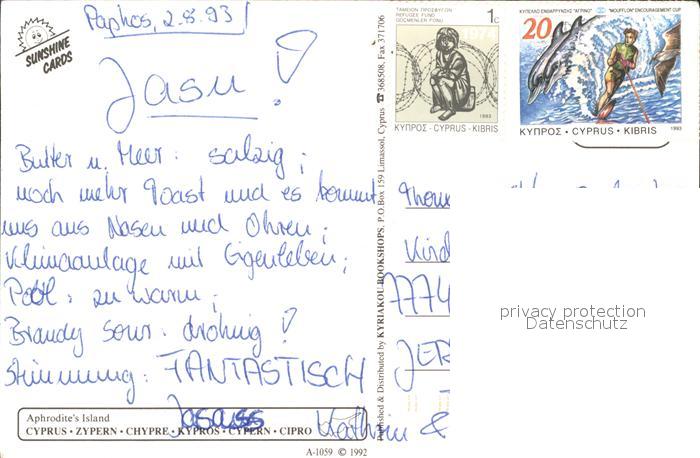 SUNSHINE
CARDS
Paphos, 2.8.93
Jasu!
Butter u. Meer: salzig;
noch mehr Toast und es kommt
uns aus Nasen und Ohren;
Klimaanlage mit Eigenleben;
Pool: zu warm;
Brandy Sour: dröhnig!
Stimmung: FANTASTISCH
Kathrin &
Aphrodite's Island
CYPRUS • ZYPERN • CHYPRE • KYPROS • CYPERN • CIPRO
A-1059 © 1992
Published & Distributed by KYRIAKOU BOOKSHOPS, P.O Box 159 Limassol, Cyprus ☎ 368508, Fax 371706
ΤΑΜΕΙΟΝ ΠΡΟΣΦΥΓΩΝ
REFUGEE FUND
GÖÇMENLER FONU
1c
1974
1993
ΚΥΠΡΟΣ - CYPRUS - KIBRIS
ΚΥΠΕΛΛΟ ΕΝΘΑΡΡΥΝΣΗΣ "ΑΓΡΙΝΟ" "MOUFFLON" ENCOURAGEMENT CUP
20
ΚΥΠΡΟΣ • CYPRUS • KIBRIS 1993
Thom
Kird
7774
JER
privacy protection
Datenschutz